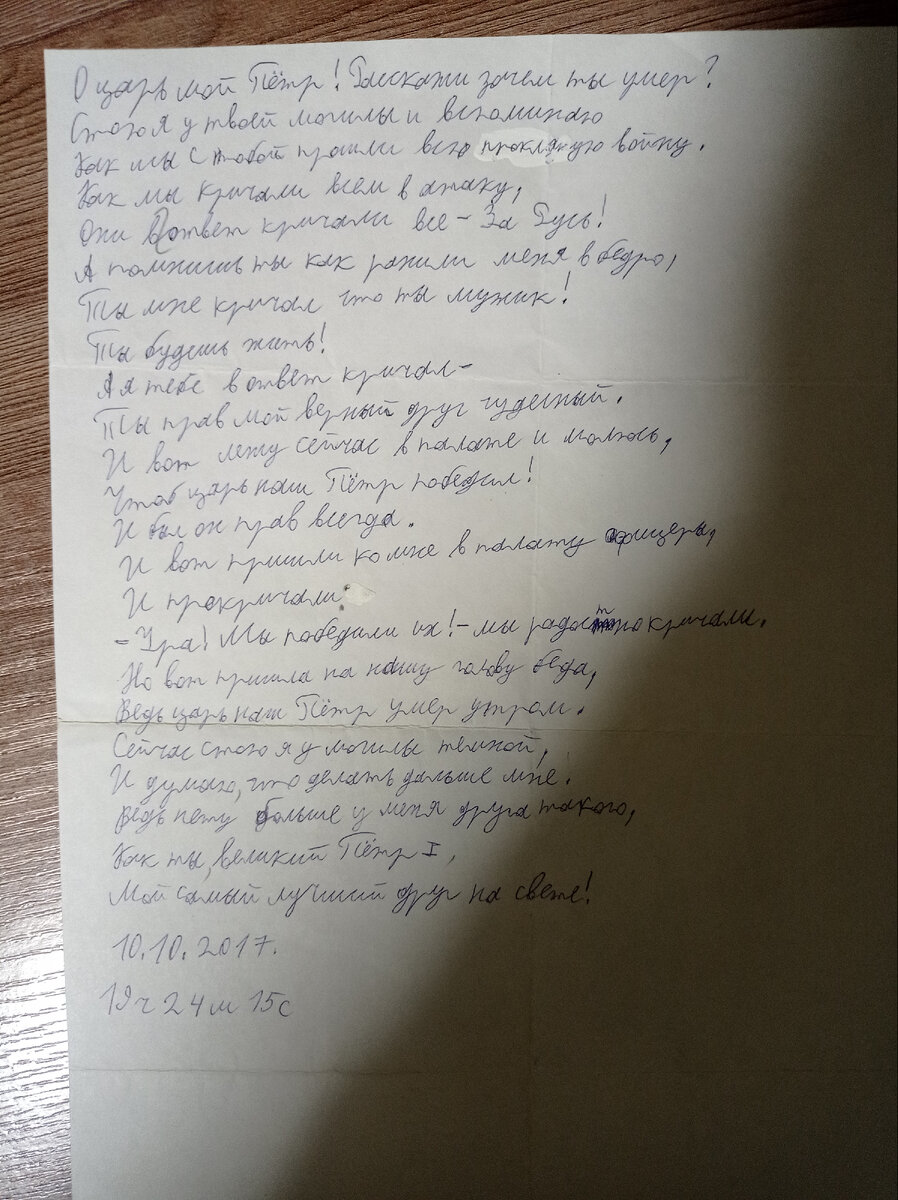 О царь мой Пётр! Расскажи зачем ты умер?
Стою я у твоей могилы и вспоминаю
Как мы с тобой прошли всю проклятую войну.
Как мы кричали всем в атаку,
Они в ответ кричали все - За Русь!
А помнишь ты как ранили меня в бедро,
Ты мне кричал что ты мужик!
Ты будешь жить!
А я тебе в ответ кричал -
Ты прав мой верный друг чудесный.
И вот лежу сейчас в палате и молюсь,
Чтоб царь наш Пётр победил!
И был он прав всегда.
И вот пришли ко мне в палату офицеры,
И прокричали
- Ура! Мы победили их! - мы радостно кричали.
Но вот пришла на нашу голову беда,
Ведь царь наш Пётр умер утром.
Сейчас стою я у могилы темной,
И думаю, что делать дальше мне.
Ведь нету больше у меня друга такого,
Как ты, великий Пётр I,
Мой самый лучший друг на свете!
10.10.2017.
19 ч 24 м 15 с